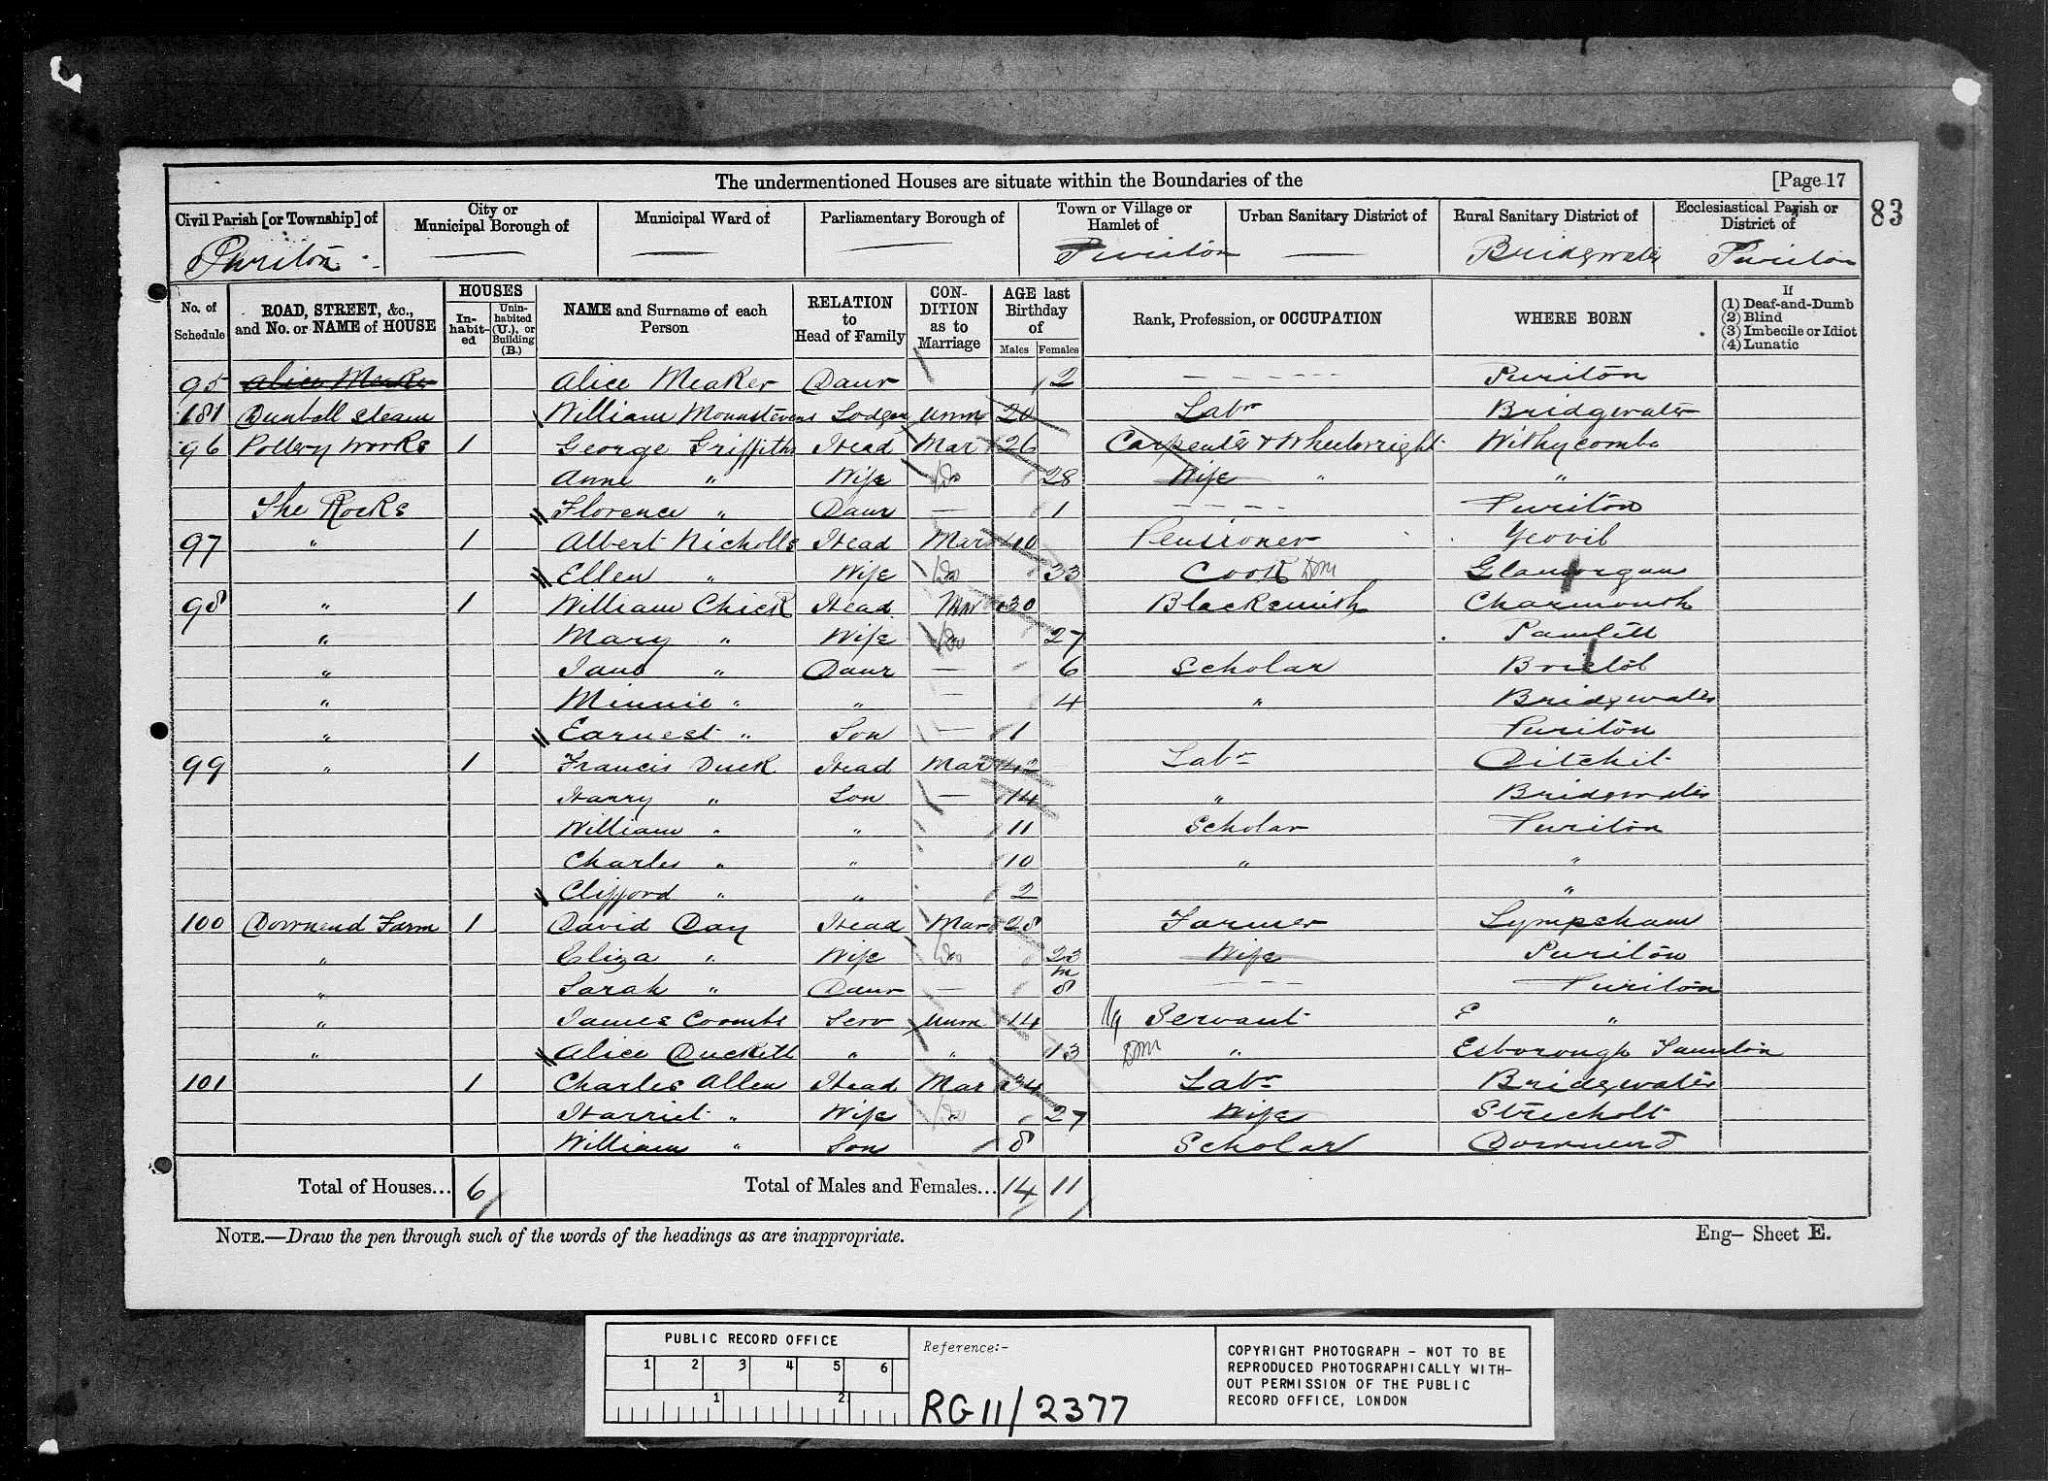 The undermentioned Houses are situate within the Boundaries of the [Page 17
83
Civil Parish [or Township] of City or Municipal Borough of Municipal Ward of Parliamentary Borough of Town or Village or Hamlet of Urban Sanitary District of Rural Sanitary District of Ecclesiastical Parish or District of
Puriton — — — Puriton — Bridgwater Puriton
No. of Schedule ROAD, STREET, &c., and No. or NAME of HOUSE HOUSES Inhabited Uninhabited (U.), or Building (B.) NAME and Surname of each Person RELATION to Head of Family CONDITION as to Marriage AGE last Birthday of Males Females Rank, Profession, or OCCUPATION WHERE BORN If (1) Deaf-and-Dumb (2) Blind (3) Imbecile or Idiot (4) Lunatic
95 Alice Meaker Alice Meaker Daur 2 - - - - - Puriton
Dunball Steam William Mounstevens Lodger Unm 20 Labr Bridgwater
96 Pottery Works 1 George Griffiths Head Mar 26 Carpenter & Wheelwright Withycombe
Anne " Wife Do 28 Wife " "
The Rocks Florence " Daur — 1 - - - - Puriton
97 " 1 Albert Nicholls Head Mar 40 Pensioner Yeovil
Ellen " Wife Do 33 Cook Dm Glamorgan
98 " 1 William Chick Head Mar 30 Blacksmith Charmouth
" Mary " Wife Do 27 Pawlett
" Jane " Daur — 6 Scholar Bristol
" Minnie " " — 4 " Bridgwater
" Earnest " Son — 1 Puriton
99 " 1 Francis Duck Head Mar 42 Labr Ditchit
Harry " Son — 14 " Bridgwater
William " " 11 Scholar Puriton
Charles " " 10 " "
Clifford " " 2 "
100 Downend Farm 1 David Day Head Mar 28 Farmer Lympsham
" Eliza " Wife Do 23 Wife Puriton
" Sarah " Daur — 8 m - - - Puriton
" James Coombs Serv Unm 14 Servant E "
" Alice Duckett " " 13 Dm " Esborough Taunton
101 1 Charles Allen Head Mar 34 Labr Bridgwater
Harriet " Wife " Do 27 Wife Stricholt
William " Son 8 Scholar Downend
Total of Houses... 6 Total of Males and Females... 14 11
NOTE.—Draw the pen through such of the words of the headings as are inappropriate. Eng— Sheet E.
PUBLIC RECORD OFFICE
1 2 3 4 5 6
1 2
Reference:-
RG 11/2377
COPYRIGHT PHOTOGRAPH – NOT TO BE
REPRODUCED PHOTOGRAPHICALLY WITH-
OUT PERMISSION OF THE PUBLIC
RECORD OFFICE, LONDON